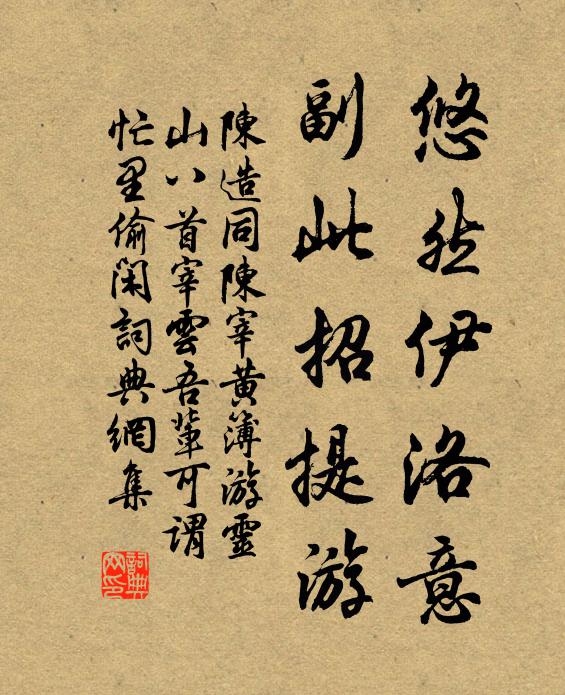 悠然伊洛意
副此招提游
陳造同陳宰黄簿游靈
山八首宰雲吾輩可謂
忙里偷闲詞典網集
詞典网印